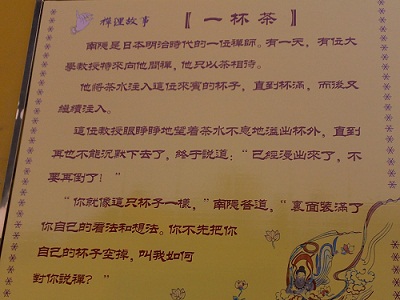 禪理故事
【一杯茶】
南隱是日本明治時代的一位禪師。有一天，有位大
學教授特來向他問禪，他只以茶相待。
他將茶水注入這位來賓的杯子，直到杯滿，而後又
繼續注入。
這位教授眼睜睜地望着茶水不息地溢出杯外，直到
再也不能沉默下去了，終于說道："已經漫出來了，不
要再倒了！"
"你就像這只杯子一樣，"南隱答道，"裏面裝滿了
你自己的看法和想法。你不先把你
自己的杯子空掉，叫我如何
對你說禪？"